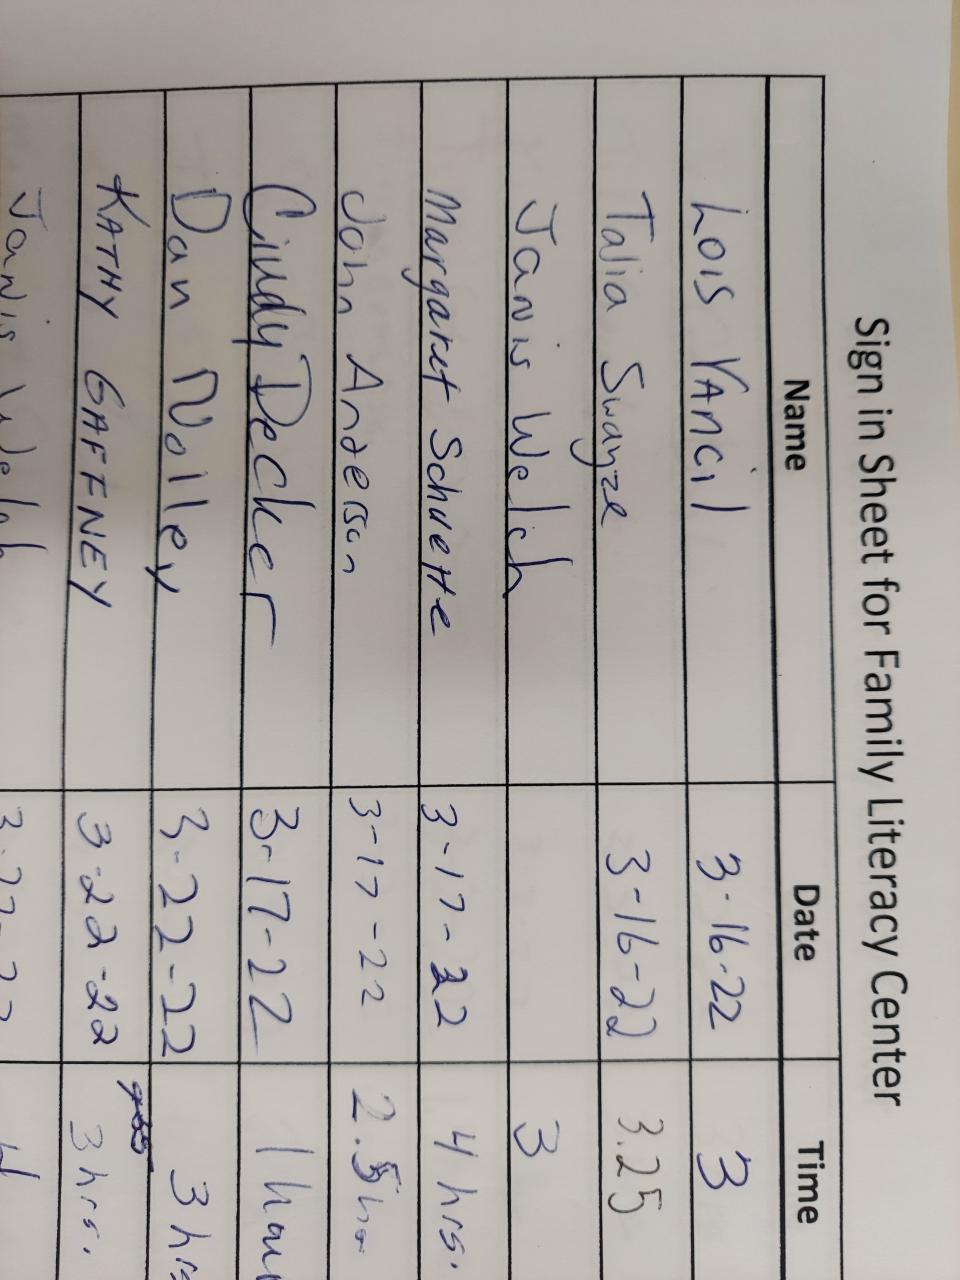 Sign in Sheet for Family Literacy Center
Name Date Time
Lois Vancil 3-16-22 3
Talia Swayze 3-16-22 3.25
Janis Welch 3
Margaret Schuette 3-17-22 4 hrs.
John Anderson 3-17-22 2.5 hr
Cindy Decker 3-17-22 1 hour
Dan Nolley 3-22-22 3 hrs
KATHY GAFFNEY 3-22-22 3 hrs.
Janis Welch 3-22-22 4